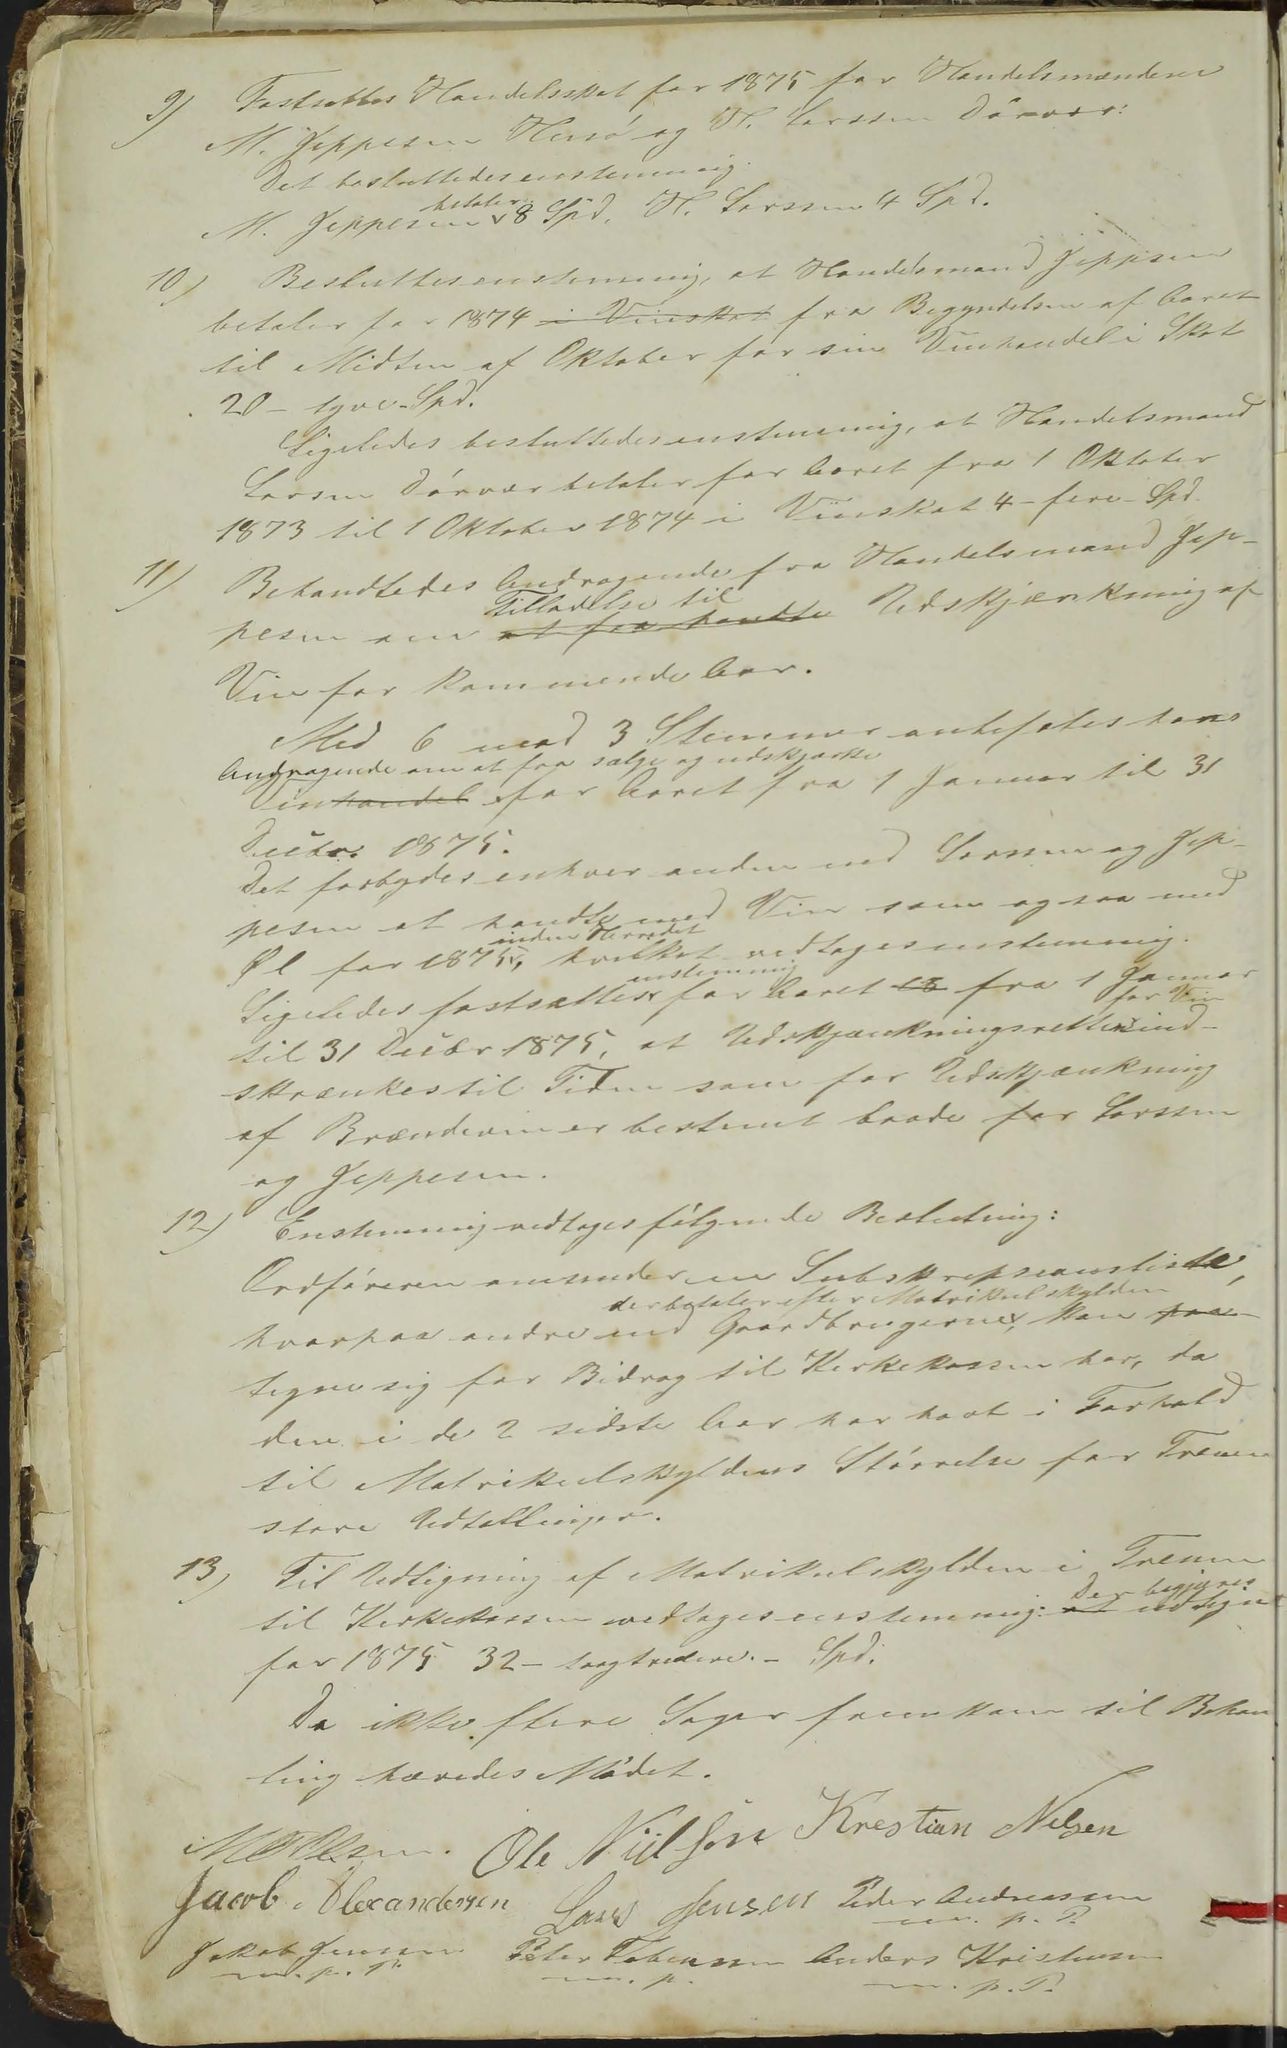 9) Fastsattes Handelsskat for 1875 for Handelsmændene
M. Jeppesen Hersö og H. Larssen Dönvær:
Det besluttedes enstemmig:
M. Jeppesen betaler 8 Spd, H. Larssen 4 Spd.
10) Besluttes enstemmig, at Handelsmand Jeppesen
betaler for 1874 i Vinskat fra Begyndelsen af Aaret
til Midten af Oktober for sin Vinhandel i Skat
20 - tyve - Spd.
Ligeledes besluttedes enstemmig, at Handelsmand
Larsen Dönvær betaler for Aaret fra 1 Oktober
1873 til 1 Oktober 1874 i Viinskat 4 - fire - Spd.
11) Behandledes Andragende fra Handelsmand Jep-
pesen om at faa handle Tilladelse til Udskjænkning af
Vin for kommende Aar.
Med 6 mod 3 Stemmer anbefales hans
Andragende om at faa sælge og udskjænke
Vinhandel for Aaret fra 1 Januar til 31
Decbr. 1875.
Det forbydes enhver anden end Larssen og Jep-
pesen at handle med Vin som ogsaa med
Øl for 1875 inden Herredet, hvilket vedtages enstemmig.
Ligeledes fastsættes enstemmig for Aaret 18 fra 1 Januar
til 31 Decbr 1875, at Udskjænkningsretten for Vin ind-
skrænkes til Tiden som for Udskjænkning
af Brændevin er bestemt baade for Larssen
og Jeppesen.
12) Enstemmig vedtages følgende Beslutning:
Ordføreren omsender en Subskrepsionsliste,
hvorpaa andre end Gaardbrugerne, der betaler efter Matrikulskylden kan paa
tegne sig for Bidrag til Kirkekassen her, da
den i de 2 sidste Aar har havt i Forhold
til Matrikulskyldens Størrelse for Trænen
store Udtællinger.
13) Til Udligning af Matrikulskylden i Trænen
til Kirkekassen vedtages enstemmig: at Der begjæres udlignet
for 1875 32 - toogtredeve - Spd.
Da ikke flere Sager fremkom til Behan
ling hævedes Mödet.
Ole Niilsön Krestian Nelsen
Jacob Alexandersen Lars Jensen Peder Andreassen
m. p. P.
Jakob Jenssen Peter Tobiassen Anders Kristensen
m. p. P. m. p. m. p. P.